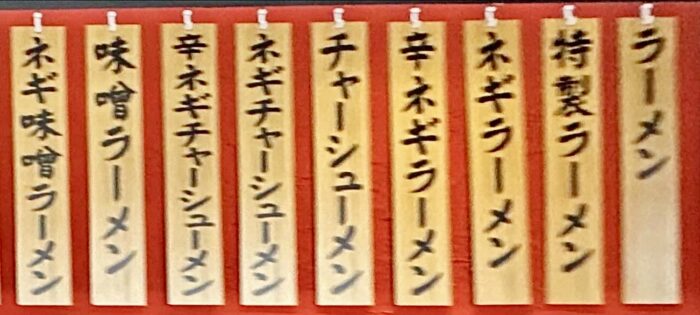 ラーメン
特製ラーメン
ネギラーメン
辛ネギラーメン
チャーシューメン
ネギチャーシューメン
辛ネギチャーシューメン
味噌ラーメン
ネギ味噌ラーメン